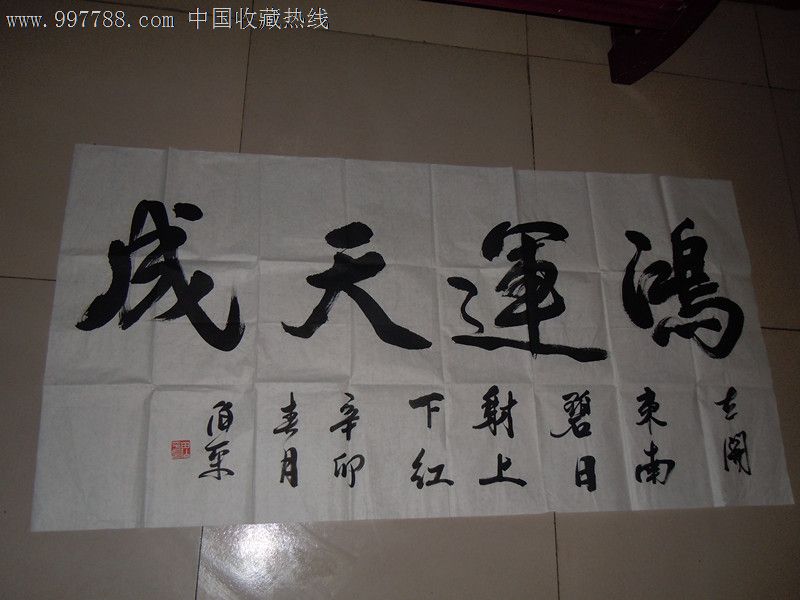 www.997788.com 中国收藏热线
鸿運天成
去開
東南
碧日
射上
下红
辛卯
春月